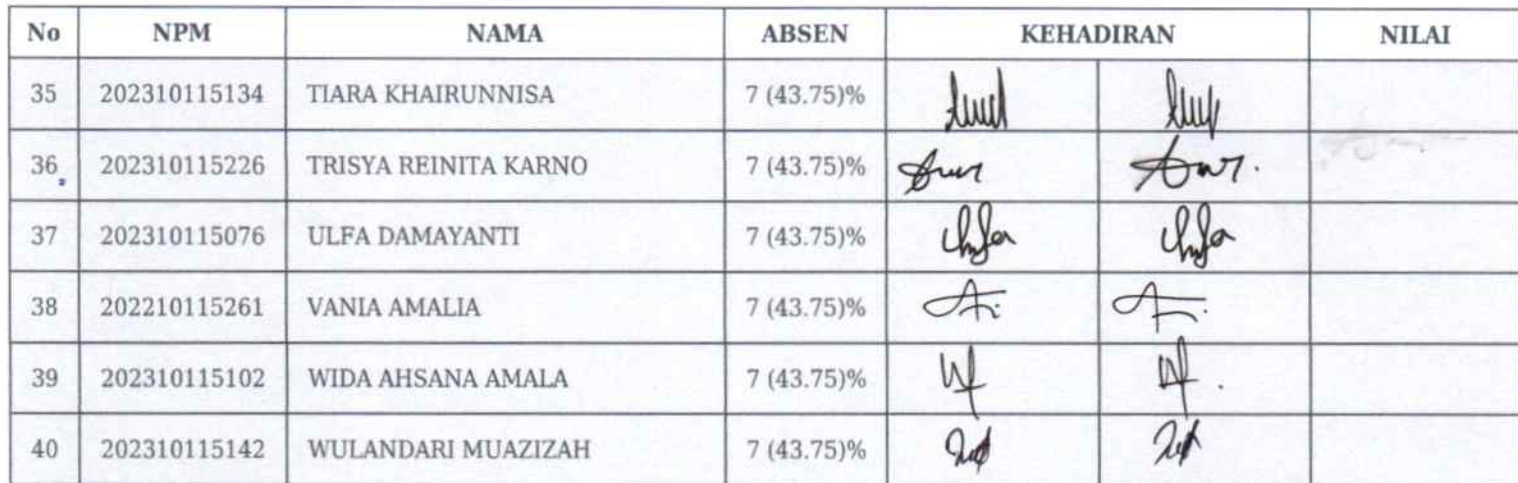 No NPM NAMA ABSEN KEHADIRAN NILAI
35 202310115134 TIARA KHAIRUNNISA 7 (43.75)%
36 202310115226 TRISYA REINITA KARNO 7 (43.75)%
37 202310115076 ULFA DAMAYANTI 7 (43.75)%
38 202210115261 VANIA AMALIA 7 (43.75)%
39 202310115102 WIDA AHSANA AMALA 7 (43.75)%
40 202310115142 WULANDARI MUAZIZAH 7 (43.75)%